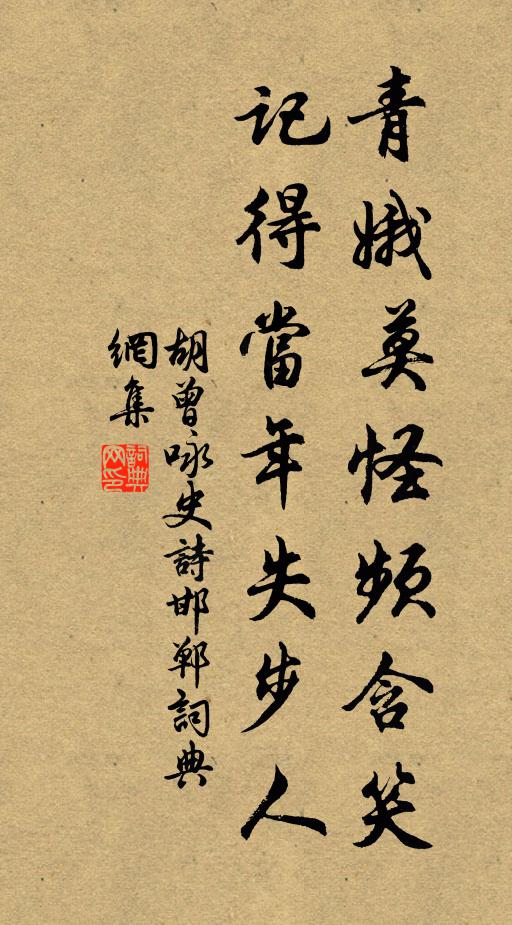 青娥莫怪頻含笑
記得當年失步人
胡曾咏史詩邯鄲詞典
網集
詞典
网印